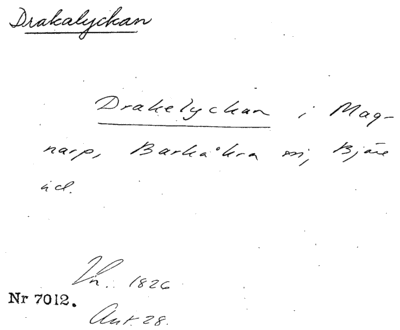 Drakalyckan
Drakelyckan i Mag-
narp, Barkåkra sn, Bjäre
äd.
Vn. 1826
Nr 7012.
Ant. 28.